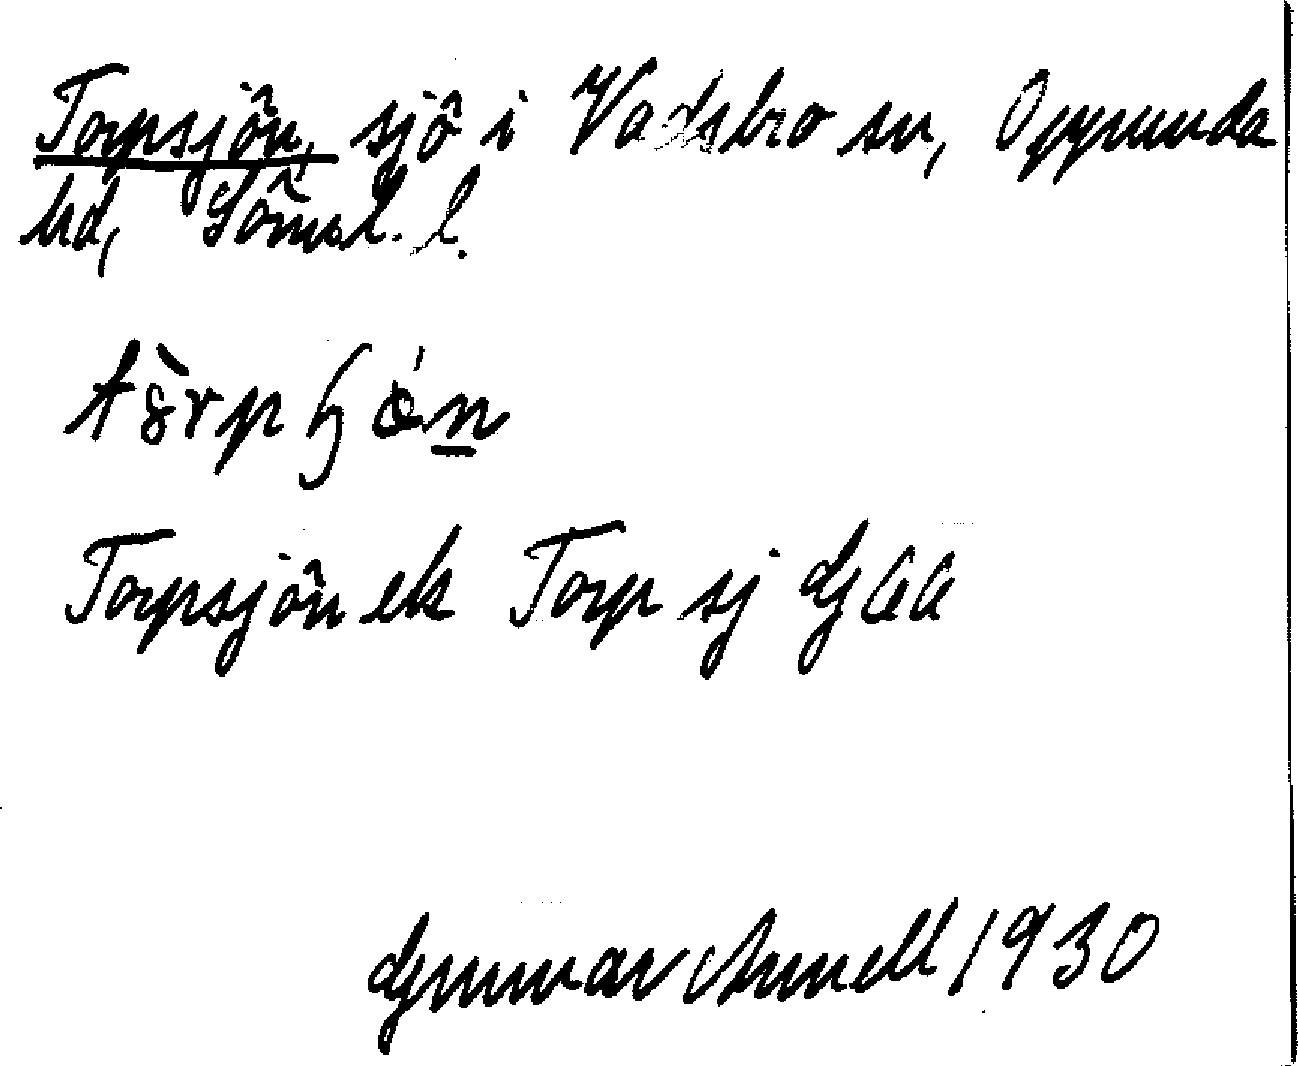 Torpsjön, sjö i Vadsbro sn, Oppunda
hd, Söml. l.
Torpsjön ek Torp sj G 66
Gunnar Arnell 1930